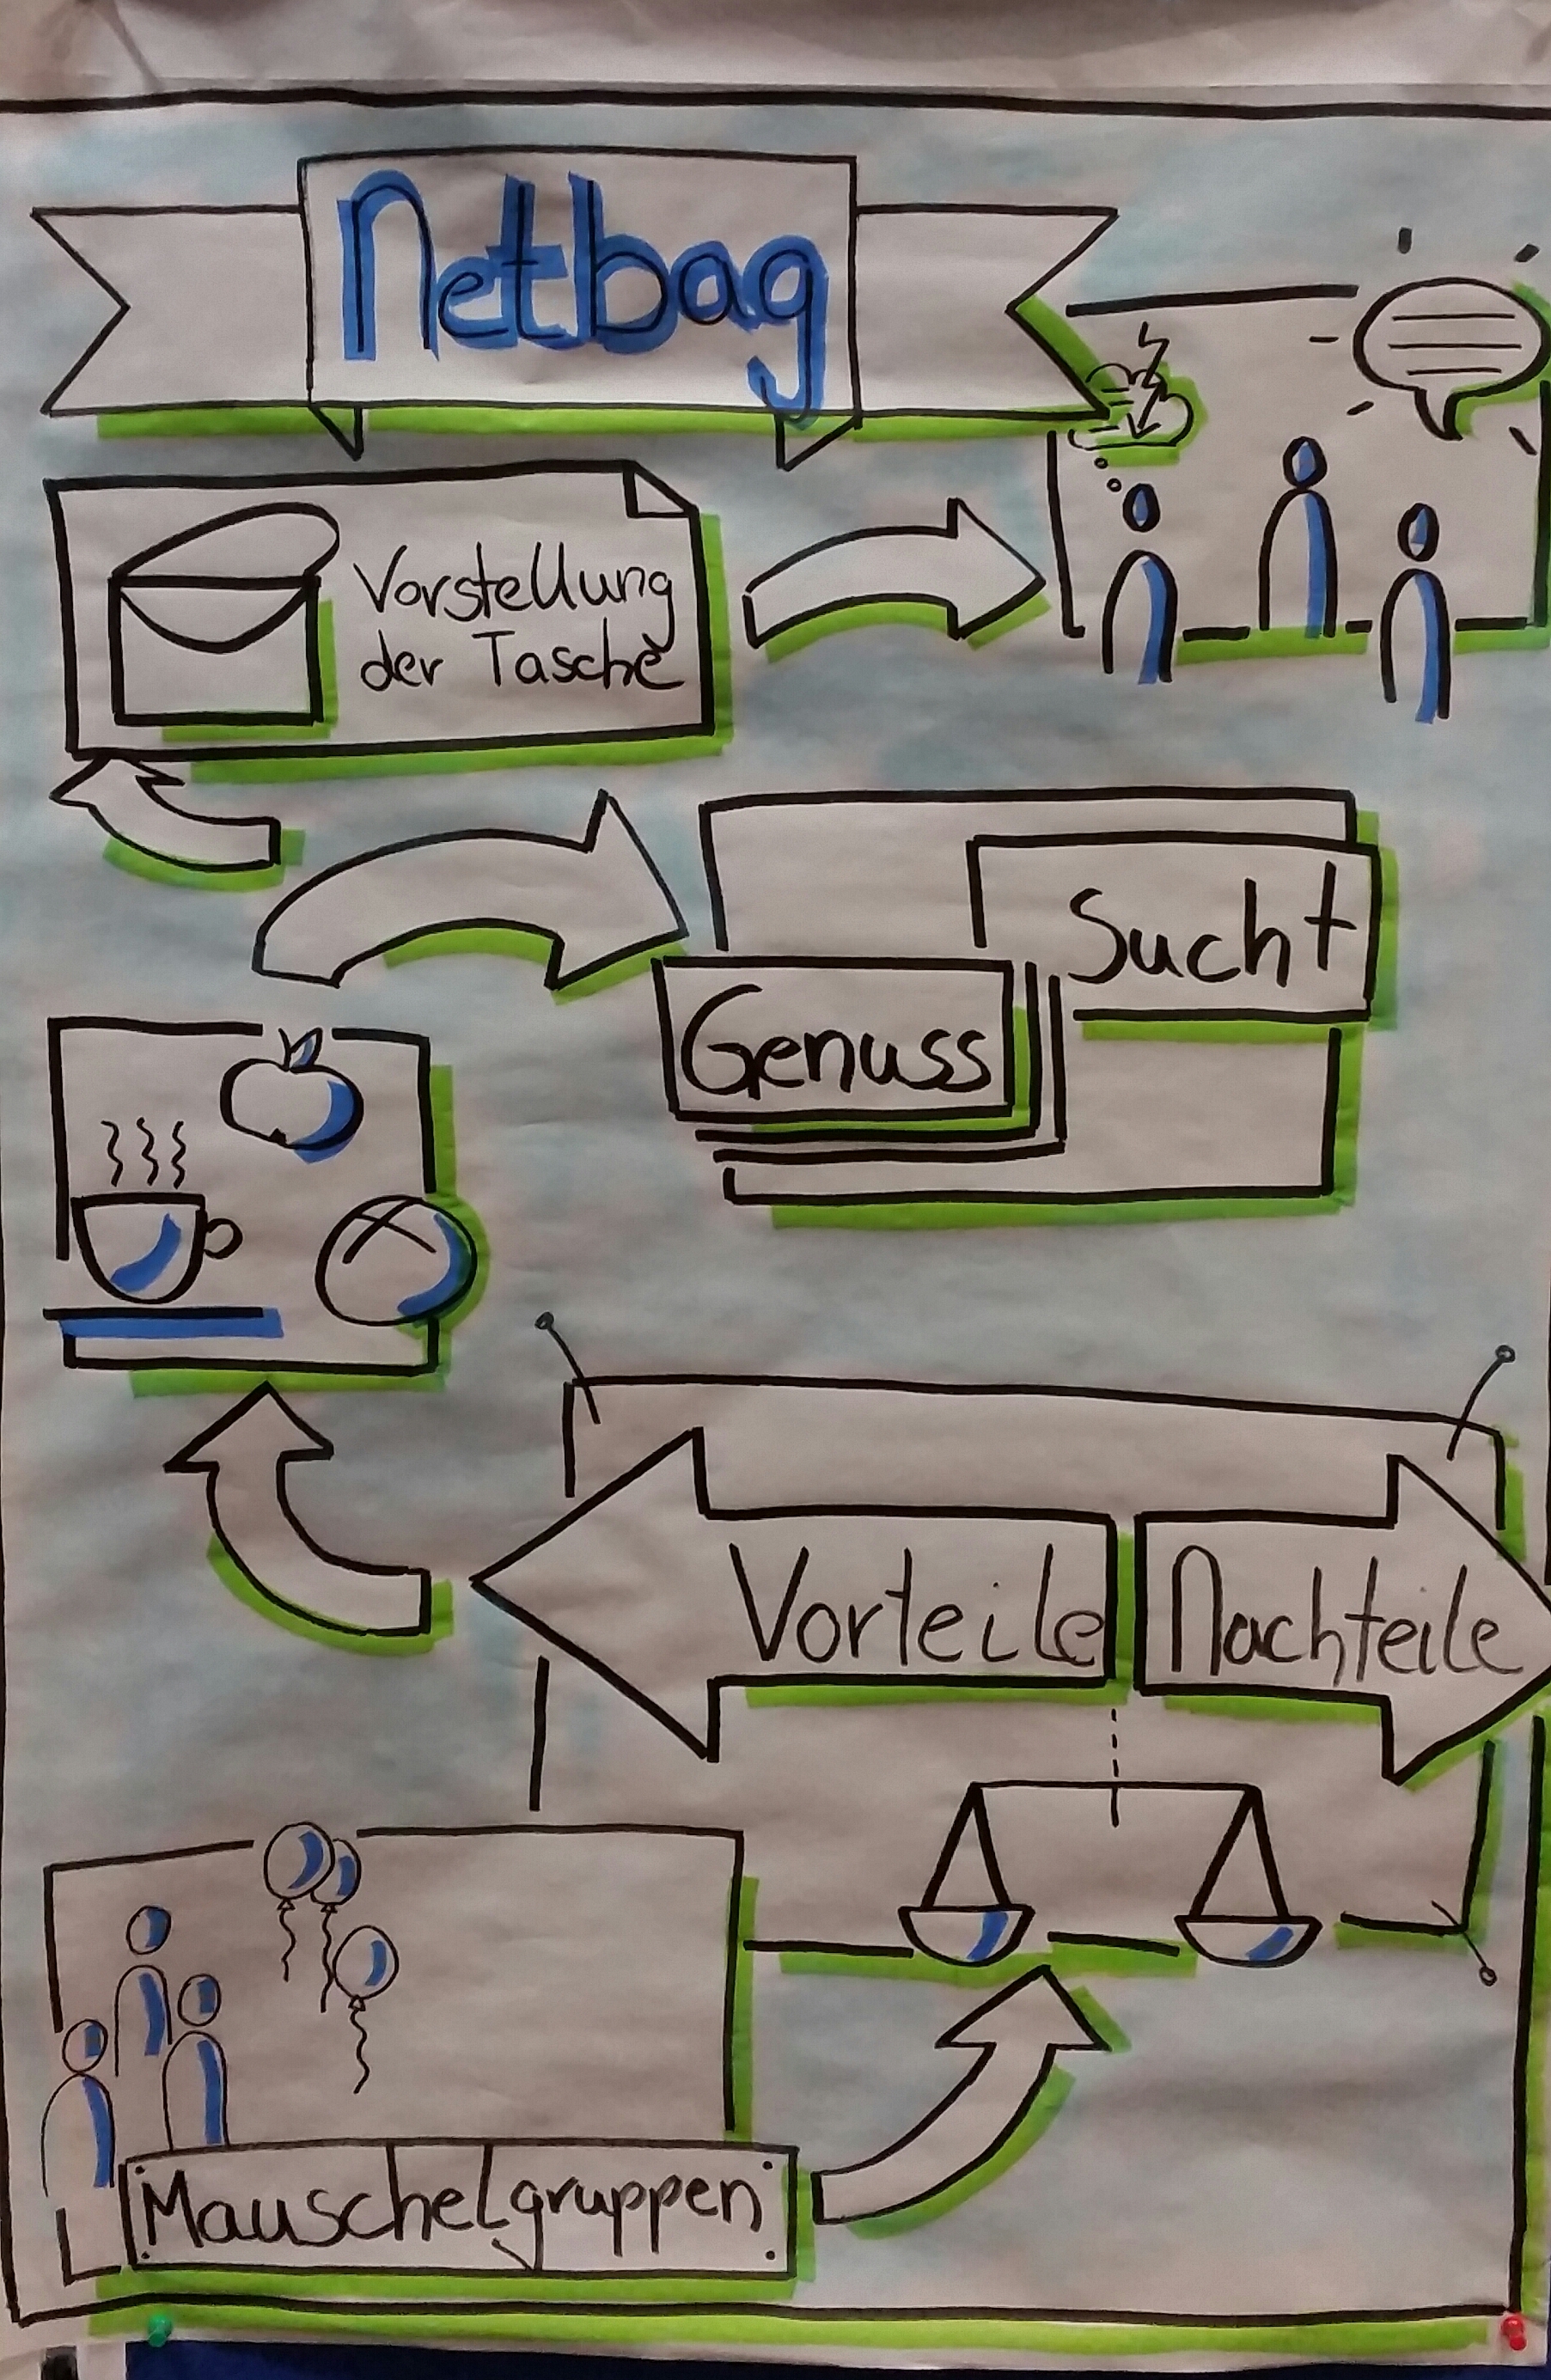 Netbag
Vorstellung
der Tasche
Sucht
Genuss
Vorteile
Nachteile
Mauschelgruppen